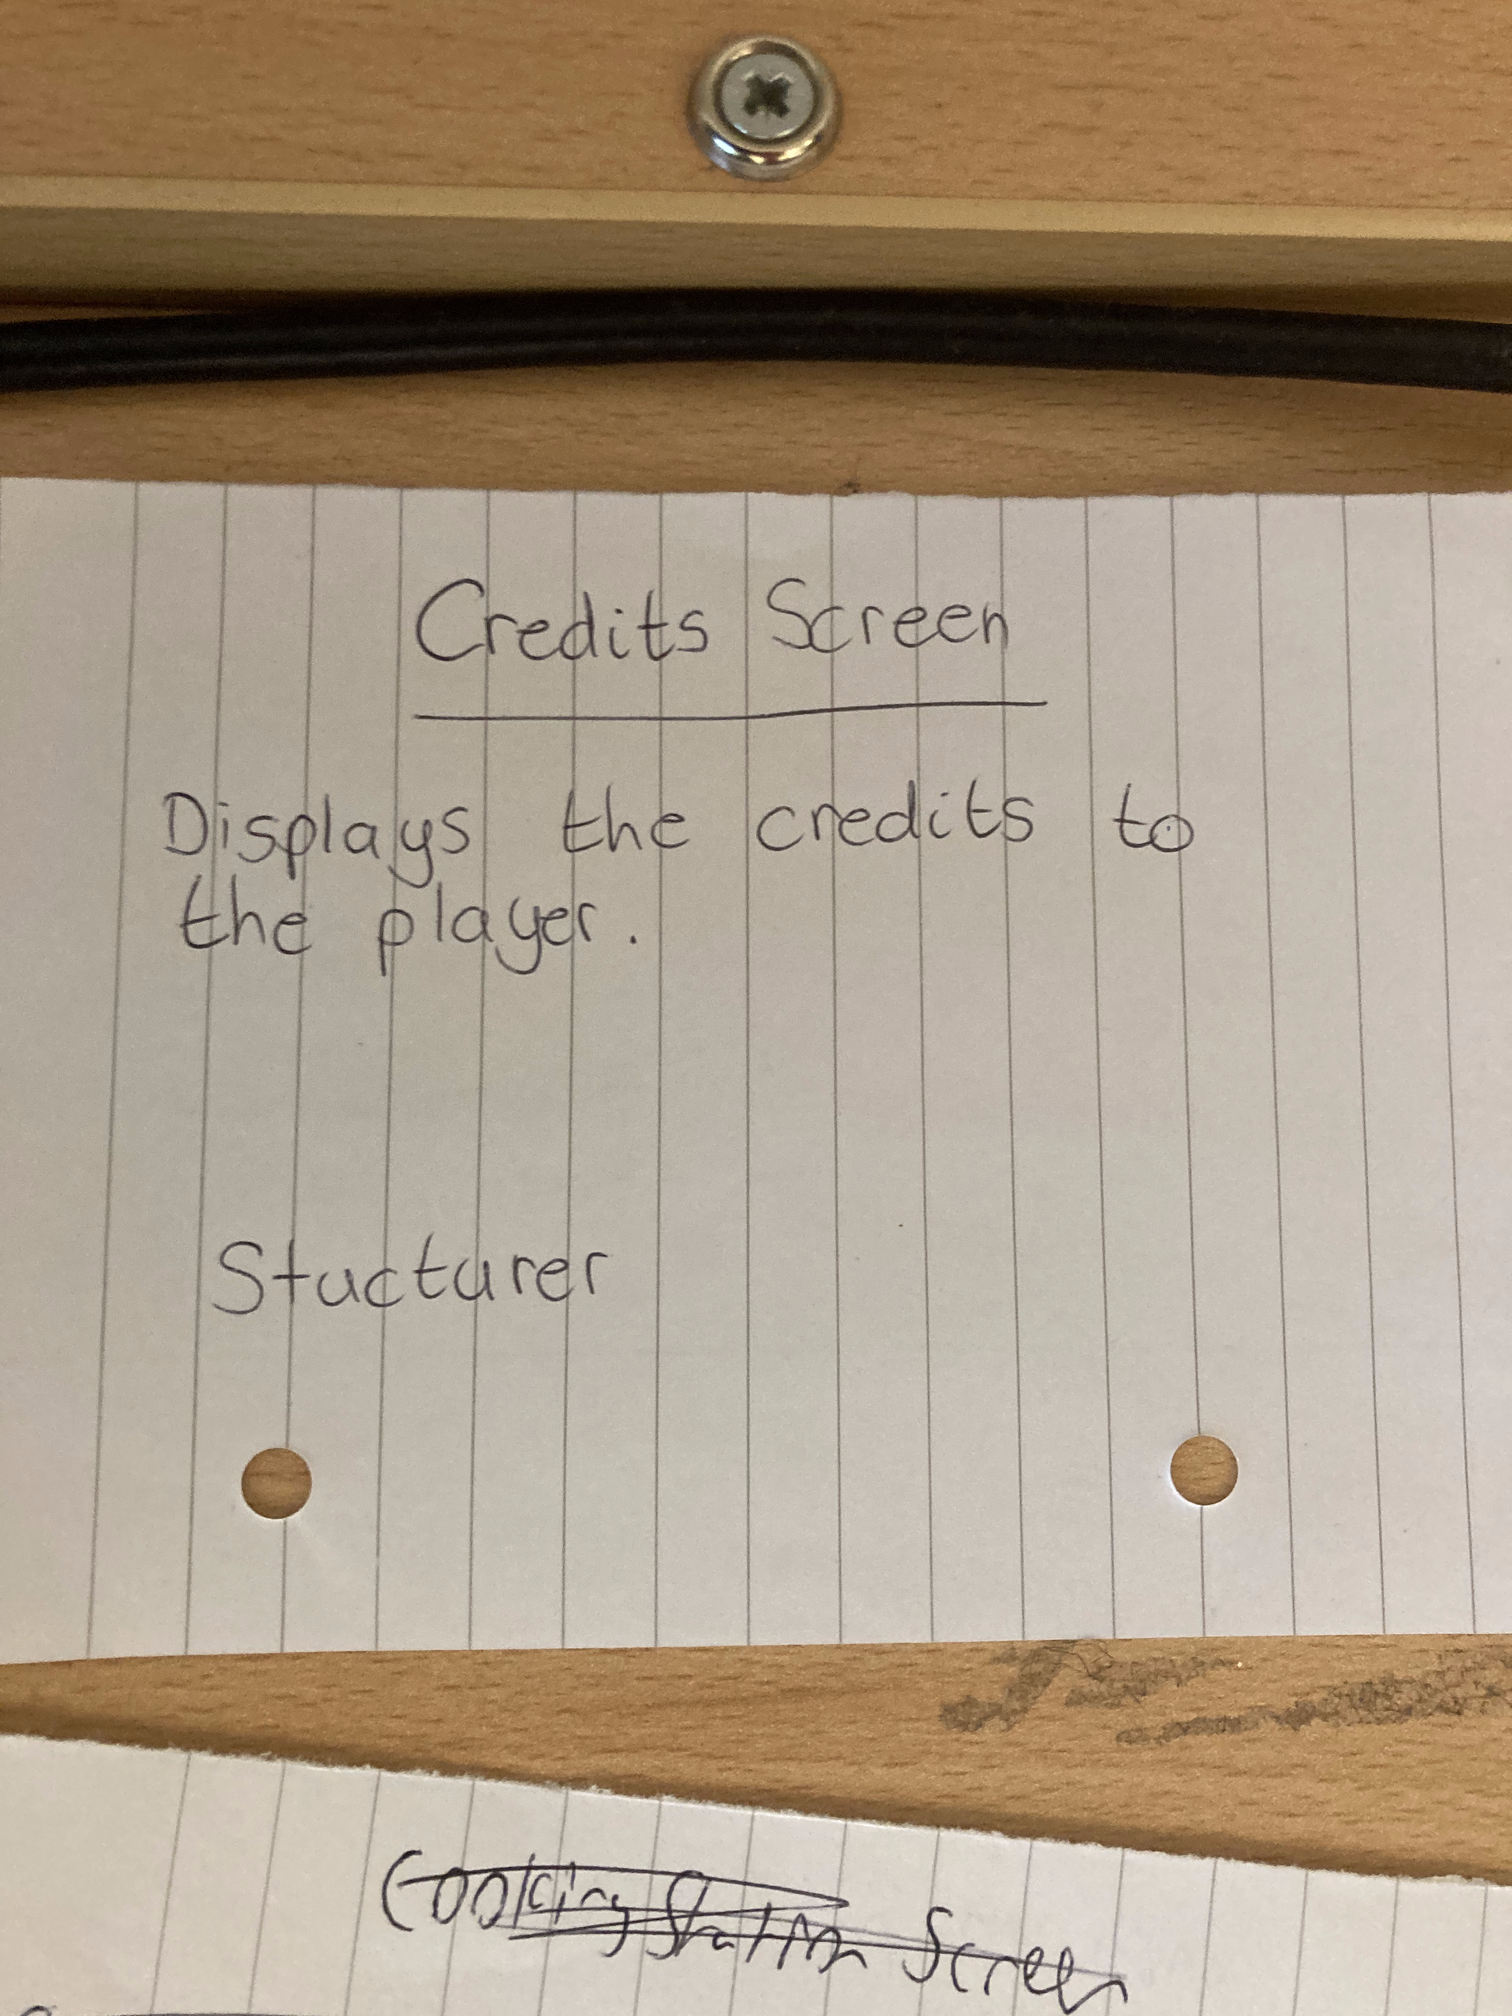 Credits Screen
Displays the credits to
the player.
Stucturer
Cooking Station Screen